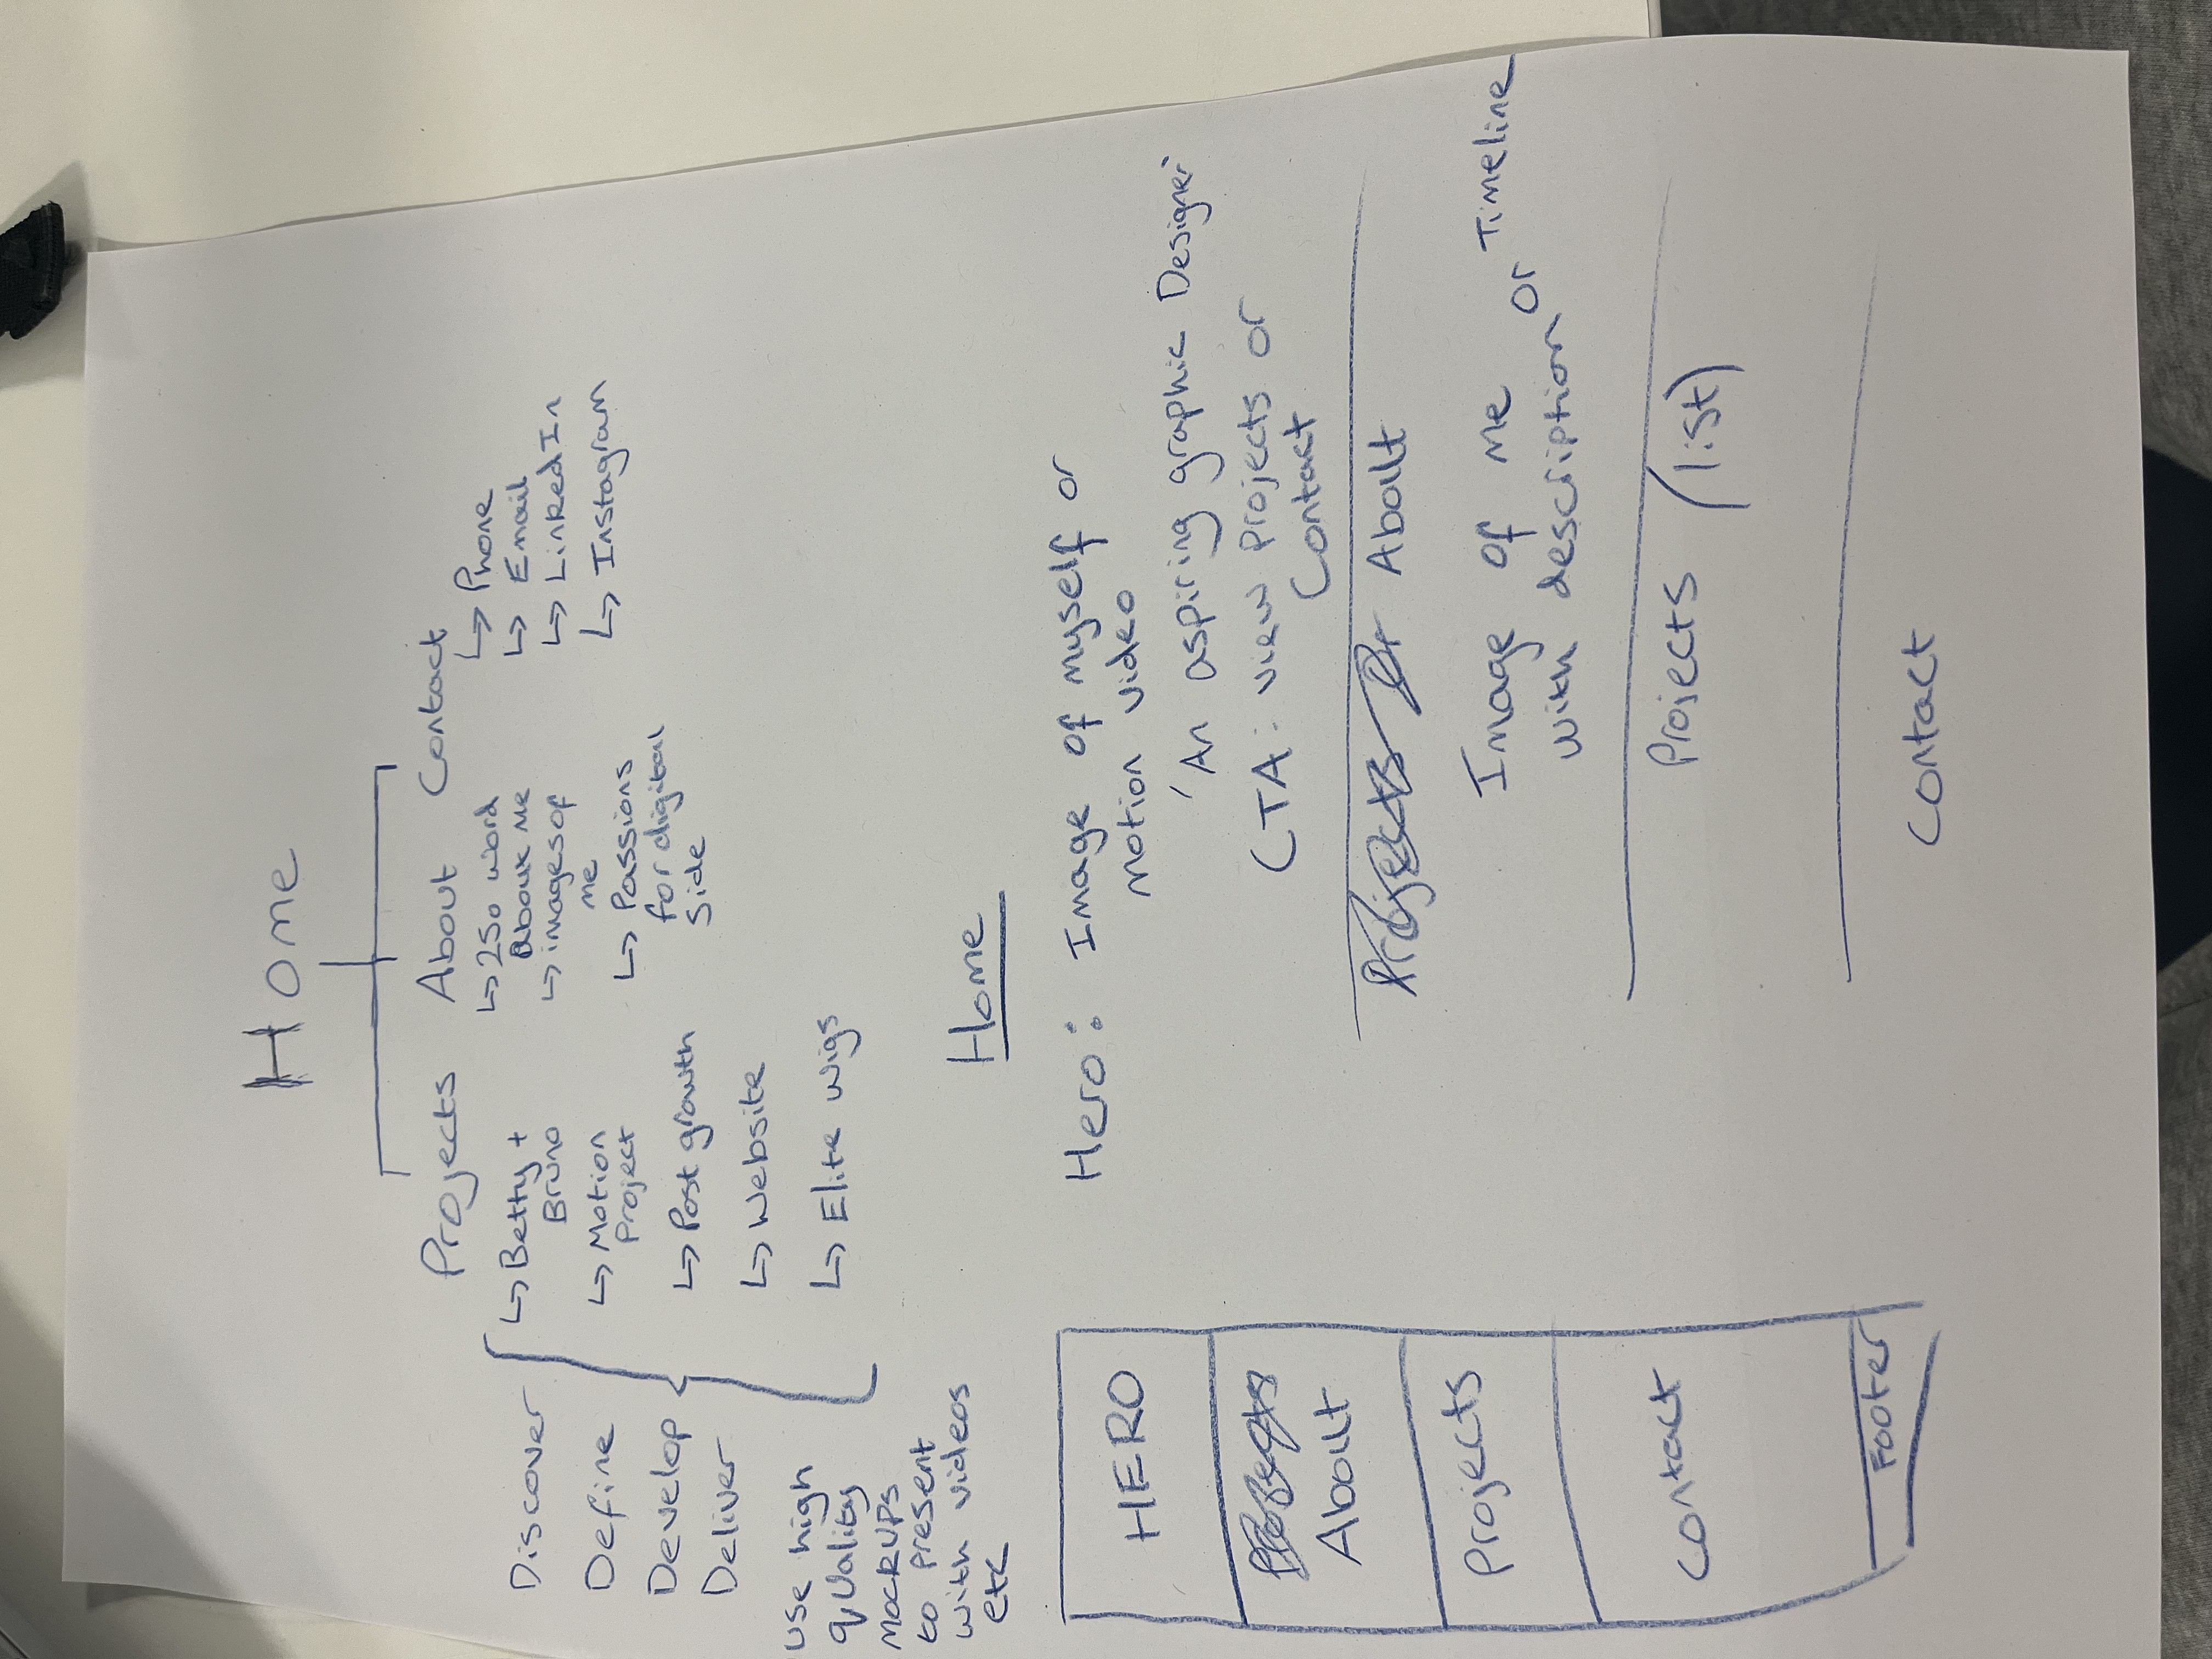 Home
Projects About Contact
Discover
Define
Develop
Deliver
use high
quality
mockups
to present
with videos
etc
↳ Betty +
Bruno
↳ Motion
Project
↳ Post growth
↳ Website
↳ Elite wigs
↳ 250 word
About Me
↳ images of
me
↳ Passions
for digital
side
↳ Phone
↳ Email
↳ LinkedIn
↳ Instagram
Home
HERO
Projects
About
Projects
Contact
Footer
Hero: Image of myself or
Motion video
'An aspiring graphic Designer'
CTA: view projects or
Contact
Projects or About
Image of me or Timeline
with description
Projects (list)
Contact